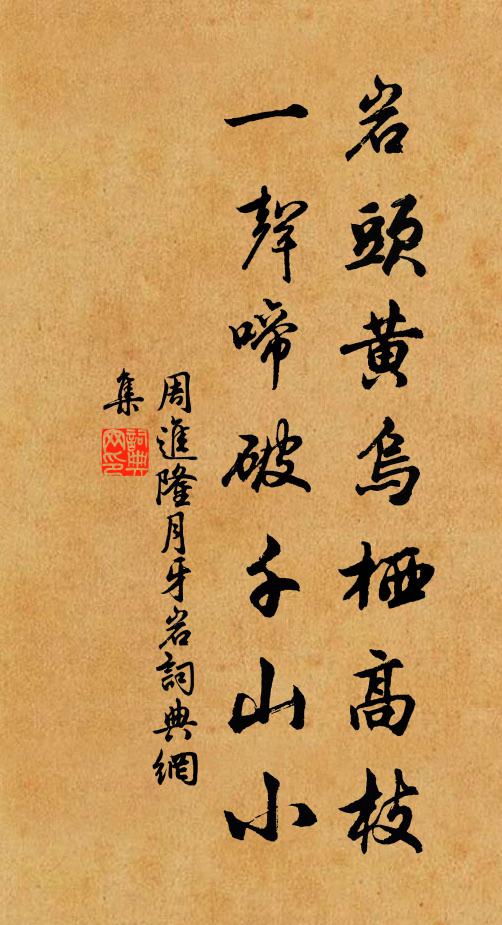 岩頭黄烏栖高枝
一聲啼破千山小
周進隆月牙岩詞典網
集
詞典網印